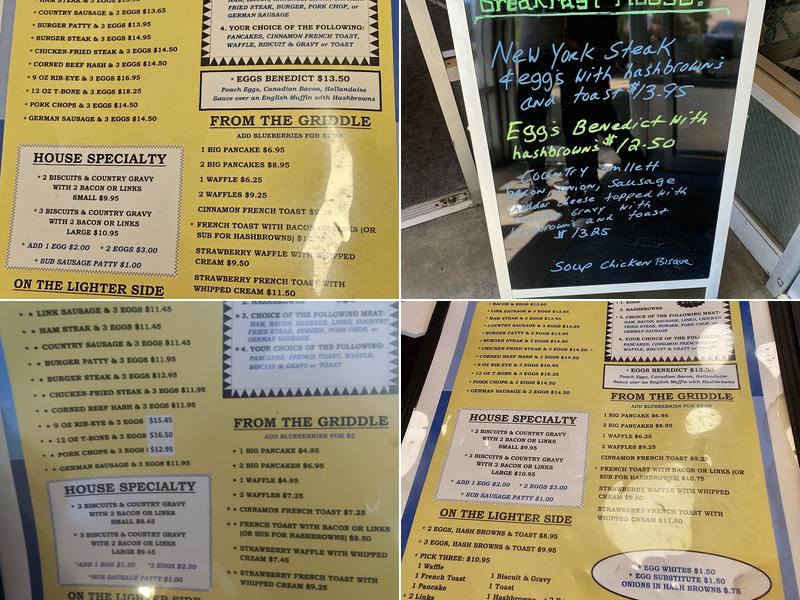 COUNTRY SAUSAGE & 3 EGGS $13.65
* BURGER PATTY & 3 EGGS $13.95
* BURGER STEAK & 3 EGGS $14.95
* CHICKEN-FRIED STEAK & 3 EGGS $14.50
* CORNED BEEF HASH & 3 EGGS $14.50
* 9 OZ RIB-EYE & 3 EGGS $16.95
* 12 OZ T-BONE & 3 EGGS $18.25
* PORK CHOPS & 3 EGGS $14.50
* GERMAN SAUSAGE & 3 EGGS $14.50
HOUSE SPECIALTY
* 2 BISCUITS & COUNTRY GRAVY
WITH 2 BACON OR LINKS
SMALL $9.95
* 3 BISCUITS & COUNTRY GRAVY
WITH 2 BACON OR LINKS
LARGE $10.95
* ADD 1 EGG $2.00 * 2 EGGS $3.00
* SUB SAUSAGE PATTY $1.00
ON THE LIGHTER SIDE
FRIED STEAK, BURGER, PORK CHOP, or
GERMAN SAUSAGE
4. YOUR CHOICE OF THE FOLLOWING:
PANCAKES, CINNAMON FRENCH TOAST,
WAFFLE, BISCUIT & GRAVY or TOAST
* EGGS BENEDICT $13.50
Poach Eggs, Canadian Bacon, Hollandaise
Sauce over an English Muffin with Hashbrowns
FROM THE GRIDDLE
ADD BLUEBERRIES FOR
1 BIG PANCAKE $6.95
2 BIG PANCAKES $8.95
1 WAFFLE $6.25
2 WAFFLES $9.25
CINNAMON FRENCH TOAST
* FRENCH TOAST WITH BACON OR LINKS (OR
SUB FOR HASHBROWNS)
STRAWBERRY WAFFLE WITH WHIPPED
CREAM $9.50
STRAWBERRY FRENCH TOAST WITH
WHIPPED CREAM $11.50
New York Steak
& eggs with hashbrowns
and toast $13.95
Eggs Benedict with
hashbrowns $12.50
Country
bacon, onion, sausage
cheese topped with
Gravy with
and toast
Soup Chicken Bisque
* LINK SAUSAGE & 3 EGGS $11.45
* * HAM STEAK & 3 EGGS $11.45
* COUNTRY SAUSAGE & 3 EGGS $11.45
* * BURGER PATTY & 3 EGGS $11.95
* BURGER STEAK & 3 EGGS $12.95
* CHICKEN-FRIED STEAK & 3 EGGS $11.95
* * CORNED BEEF HASH & 3 EGGS $11.95
* * 9 OZ RIB-EYE & 3 EGGS $15.45
* * 12 OZ T-BONE & 3 EGGS $16.50
* * PORK CHOPS & 3 EGGS $12.95
* * GERMAN SAUSAGE & 3 EGGS $11.95
HOUSE SPECIALTY
* 2 BISCUITS & COUNTRY GRAVY
WITH 2 BACON OR LINKS
SMALL $8.45
* 3 BISCUITS & COUNTRY GRAVY
WITH 2 BACON OR LINKS
LARGE $9.45
*ADD 1 EGG $1.50 *2 EGGS $2.50
*SUB SAUSAGE PATTY $1.00
ON THE LIGHTER SIDE
2. HASHBROWNS
* 3. CHOICE OF THE FOLLOWING MEAT:
HAM, BACON, SAUSAGE, LINKS, COUNTRY
FRIED STEAK, BURGER, PORK CHOP, or
GERMAN SAUSAGE
* 4. YOUR CHOICE OF THE FOLLOWING:
PANCAKES, FRENCH TOAST, WAFFLE,
BISCUIT & GRAVY or TOAST
FROM THE GRIDDLE
ADD BLUEBERRIES FOR $2
* 1 BIG PANCAKE $4.95
* 2 BIG PANCAKES $6.95
* 1 WAFFLE $4.95
* 2 WAFFLES $7.25
* * CINNAMON FRENCH TOAST $7.25
* * FRENCH TOAST WITH BACON OR LINKS
(OR SUB FOR HASHBROWNS) $8.50
* STRAWBERRY WAFFLE WITH WHIPPED
CREAM $7.45
* * STRAWBERRY FRENCH TOAST WITH
WHIPPED CREAM $9.25
* LINK SAUSAGE & 3 EGGS $13.65
* HAM STEAK & 3 EGGS
* COUNTRY SAUSAGE & 3 EGGS $13.65
* BURGER PATTY & 3 EGGS $13.95
* BURGER STEAK & 3 EGGS $14.95
* CHICKEN-FRIED STEAK & 3 EGGS $14.50
* CORNED BEEF HASH & 3 EGGS $14.50
* 9 OZ RIB-EYE & 3 EGGS $16.95
* 12 OZ T-BONE & 3 EGGS $18.25
* PORK CHOPS & 3 EGGS $14.50
* GERMAN SAUSAGE & 3 EGGS $14.50
HOUSE SPECIALTY
* 2 BISCUITS & COUNTRY GRAVY
WITH 2 BACON OR LINKS
SMALL $9.95
* 3 BISCUITS & COUNTRY GRAVY
WITH 2 BACON OR LINKS
LARGE $10.95
* ADD 1 EGG $2.00 * 2 EGGS $3.00
* SUB SAUSAGE PATTY $1.00
ON THE LIGHTER SIDE
* 2 EGGS, HASH BROWNS & TOAST $8.95
* 3 EGGS, HASH BROWNS & TOAST $9.95
* PICK THREE: $10.95
1 Waffle
1 French Toast
1 Pancake
* 2 Links
1 Biscuit & Gravy
1 Toast
1 Hashbrowns
2. HASHBROWNS
* EGGS BENEDICT $13.50
Poach Eggs, Canadian Bacon, Hollandaise
Sauce over an English Muffin with Hashbrowns
FROM THE GRIDDLE
ADD BLUEBERRIES FOR $2.00
1 BIG PANCAKE $6.95
2 BIG PANCAKES $8.95
1 WAFFLE $6.25
2 WAFFLES $9.25
CINNAMON FRENCH TOAST $9.25
* FRENCH TOAST WITH BACON OR LINKS (OR
SUB FOR HASHBROWNS) $10.75
STRAWBERRY WAFFLE WITH WHIPPED
CREAM $9.50
STRAWBERRY FRENCH TOAST WITH
WHIPPED CREAM $11.50
* EGG WHITES $1.50
* EGG SUBSTITUTE $1.50
ONIONS IN HASH BROWNS $.75